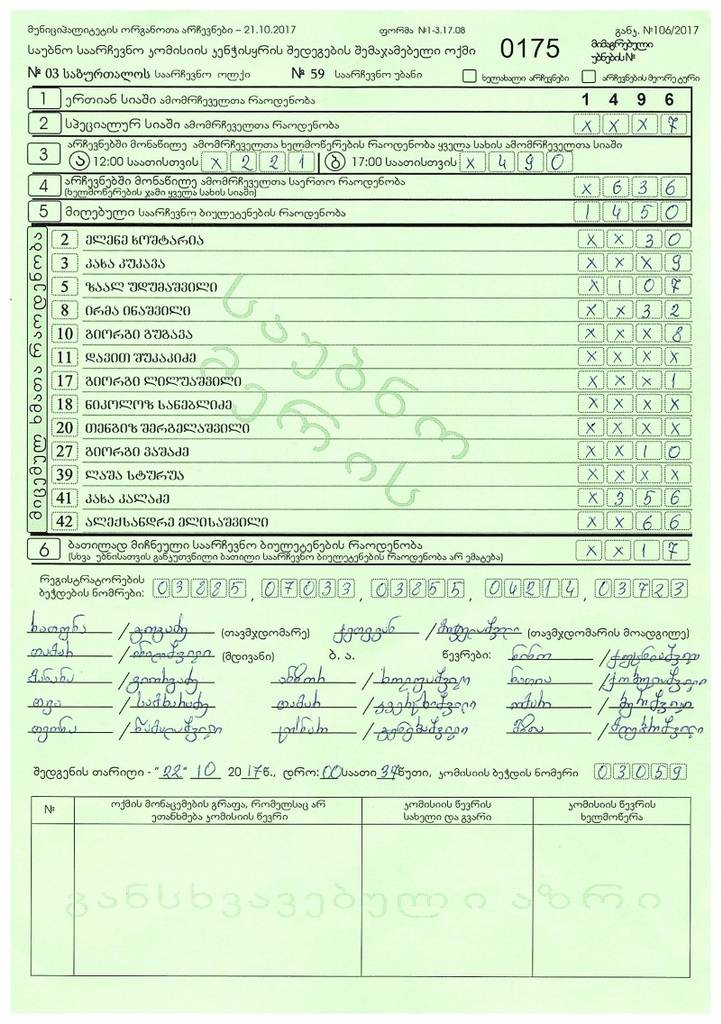 მუნიციპალიტეტის ორგანოთა არჩევნები – 21.10.2017 ფორმა №1-3.17.08 განკ. №106/2017
საუბნო საარჩევნო კომისიის კენჭისყრის შედეგების შემაჯამებელი ოქმი 0175 მიმაგრებული უბნების№
№ 03 საბურთალოს საარჩევნო ოლქი № 59 საარჩევნო უბანი ხელახალი არჩევნები არჩევნების მეორე ტური
1 ერთიან სიაში ამომრჩეველთა რაოდენობა 1 4 9 6
2 სპეციალურ სიაში ამომრჩეველთა რაოდენობა X X X 7
3 არჩევნებში მონაწილე ამომრჩეველთა ხელმოწერების რაოდენობა ყველა სახის ამომრჩეველთა სიაში
ა 12:00 საათისთვის X 2 2 1 ბ 17:00 საათისთვის X 4 9 0
4 არჩევნებში მონაწილე ამომრჩეველთა საერთო რაოდენობა X 6 3 6
(ხელმოწერების ჯამი ყველა სახის სიაში)
5 მიღებული საარჩევნო ბიულეტენების რაოდენობა 1 4 5 0
მიცემულ ხმათა რაოდენობა
2 ელენე ხოშტარია X X 3 0
3 კახა კუკავა X X X 9
5 ზაალ უდუმაშვილი X 1 0 7
8 ირმა ინაშვილი X X 3 2
10 გიორგი გუგავა X X X 8
11 დავით შუკაკიძე X X X X
17 გიორგი ლილუაშვილი X X X 1
18 ნიკოლოზ სანებლიძე X X X X
20 თენგიზ შერგელაშვილი X X X X
27 გიორგი ვაშაძე X X 1 0
39 ლაშა სტურუა X X X X
41 კახა კალაძე X 3 5 6
42 ალექსანდრე ელისაშვილი X X 6 6
საუბნო
მერის
6 ბათილად მიჩნეული საარჩევნო ბიულეტენების რაოდენობა X X 1 7
(სხვა უბნისათვის განკუთვნილი ბათილი საარჩევნო ბიულეტენების რაოდენობა არ ემატება)
რეგისტრატორების
ბეჭდების ნომრები: 03885, 07033, 03855, 04214, 03723
ხათუნა / (თავმჯდომარე) / (თავმჯდომარის მოადგილე)
თამარ / (მდივანი) ბ. ა. წევრები: ნინო /
მანანა / ანზორ / ნათია /
/ თამარ /
/ /
შედგენის თარიღი - "22" 10 2017წ., დრო: 00 საათი 34 წუთი, კომისიის ბეჭდის ნომერი 03059
№ ოქმის მონაცემების გრაფა, რომელსაც არ ეთანხმება კომისიის წევრი კომისიის წევრის სახელი და გვარი კომისიის წევრის ხელმოწერა
განსხვავებული აზრი